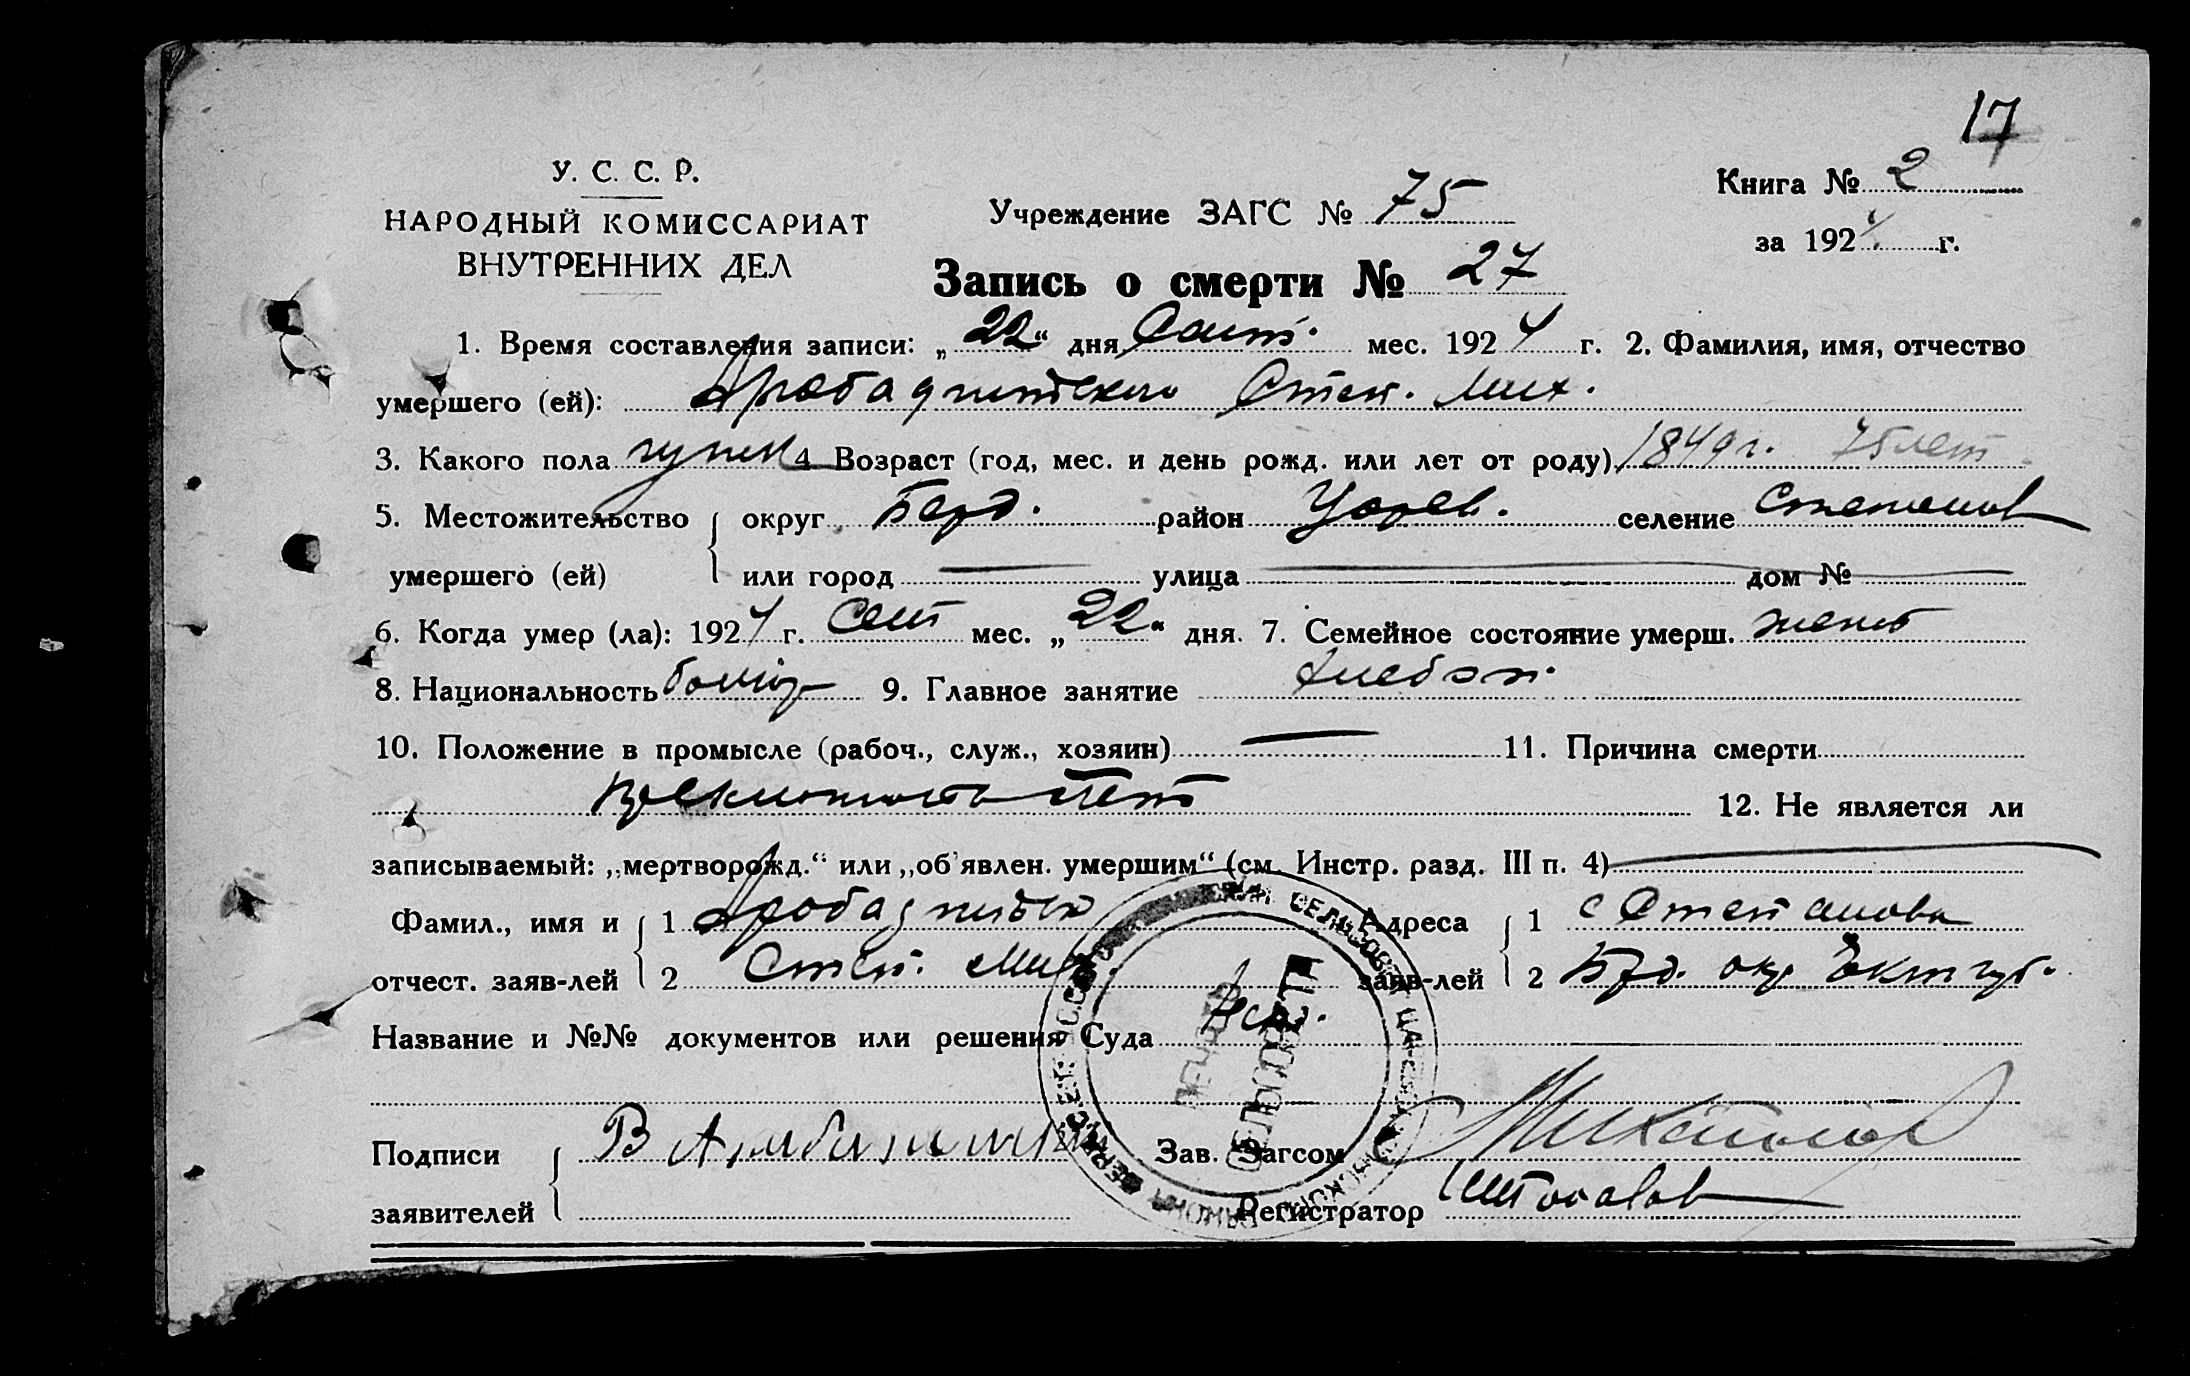 17
У. С. С. Р.
НАРОДНЫЙ КОМИССАРИАТ
ВНУТРЕННИХ ДЕЛ
Учреждение ЗАГС № 75
Книга № 2
за 1924 г.
Запись о смерти № 27
1. Время составления записи: „22“ дня Сент. мес. 1924 г. 2. Фамилия, имя, отчество
умершего (ей): Степ. Мих.
3. Какого пола 4 Возраст (год, мес. и день рожд. или лет от роду) 1849 г. 75 лет
5. Местожительство округ Берд. район Царев. селение Степанов
умершего (ей) или город — улица — дом № —
6. Когда умер (ла): 1924 г. Сент мес. „22“ дня. 7. Семейное состояние умерш. женат
8. Национальность болгар 9. Главное занятие хлебоп.
10. Положение в промысле (рабоч., служ., хозяин) — 11. Причина смерти
лет 12. Не является ли
записываемый: „мертворожд.“ или „об'явлен. умершим“ (см. Инстр. разд. III п. 4) —
Фамил., имя и 1 Адреса 1 с Степановка
отчест. заяв-лей 2 Степ. Мих. заяв-лей 2 Брд. окр Ект губ.
Название и №№ документов или решения Суда
Подписи В Зав. Загсом
заявителей Регистратор